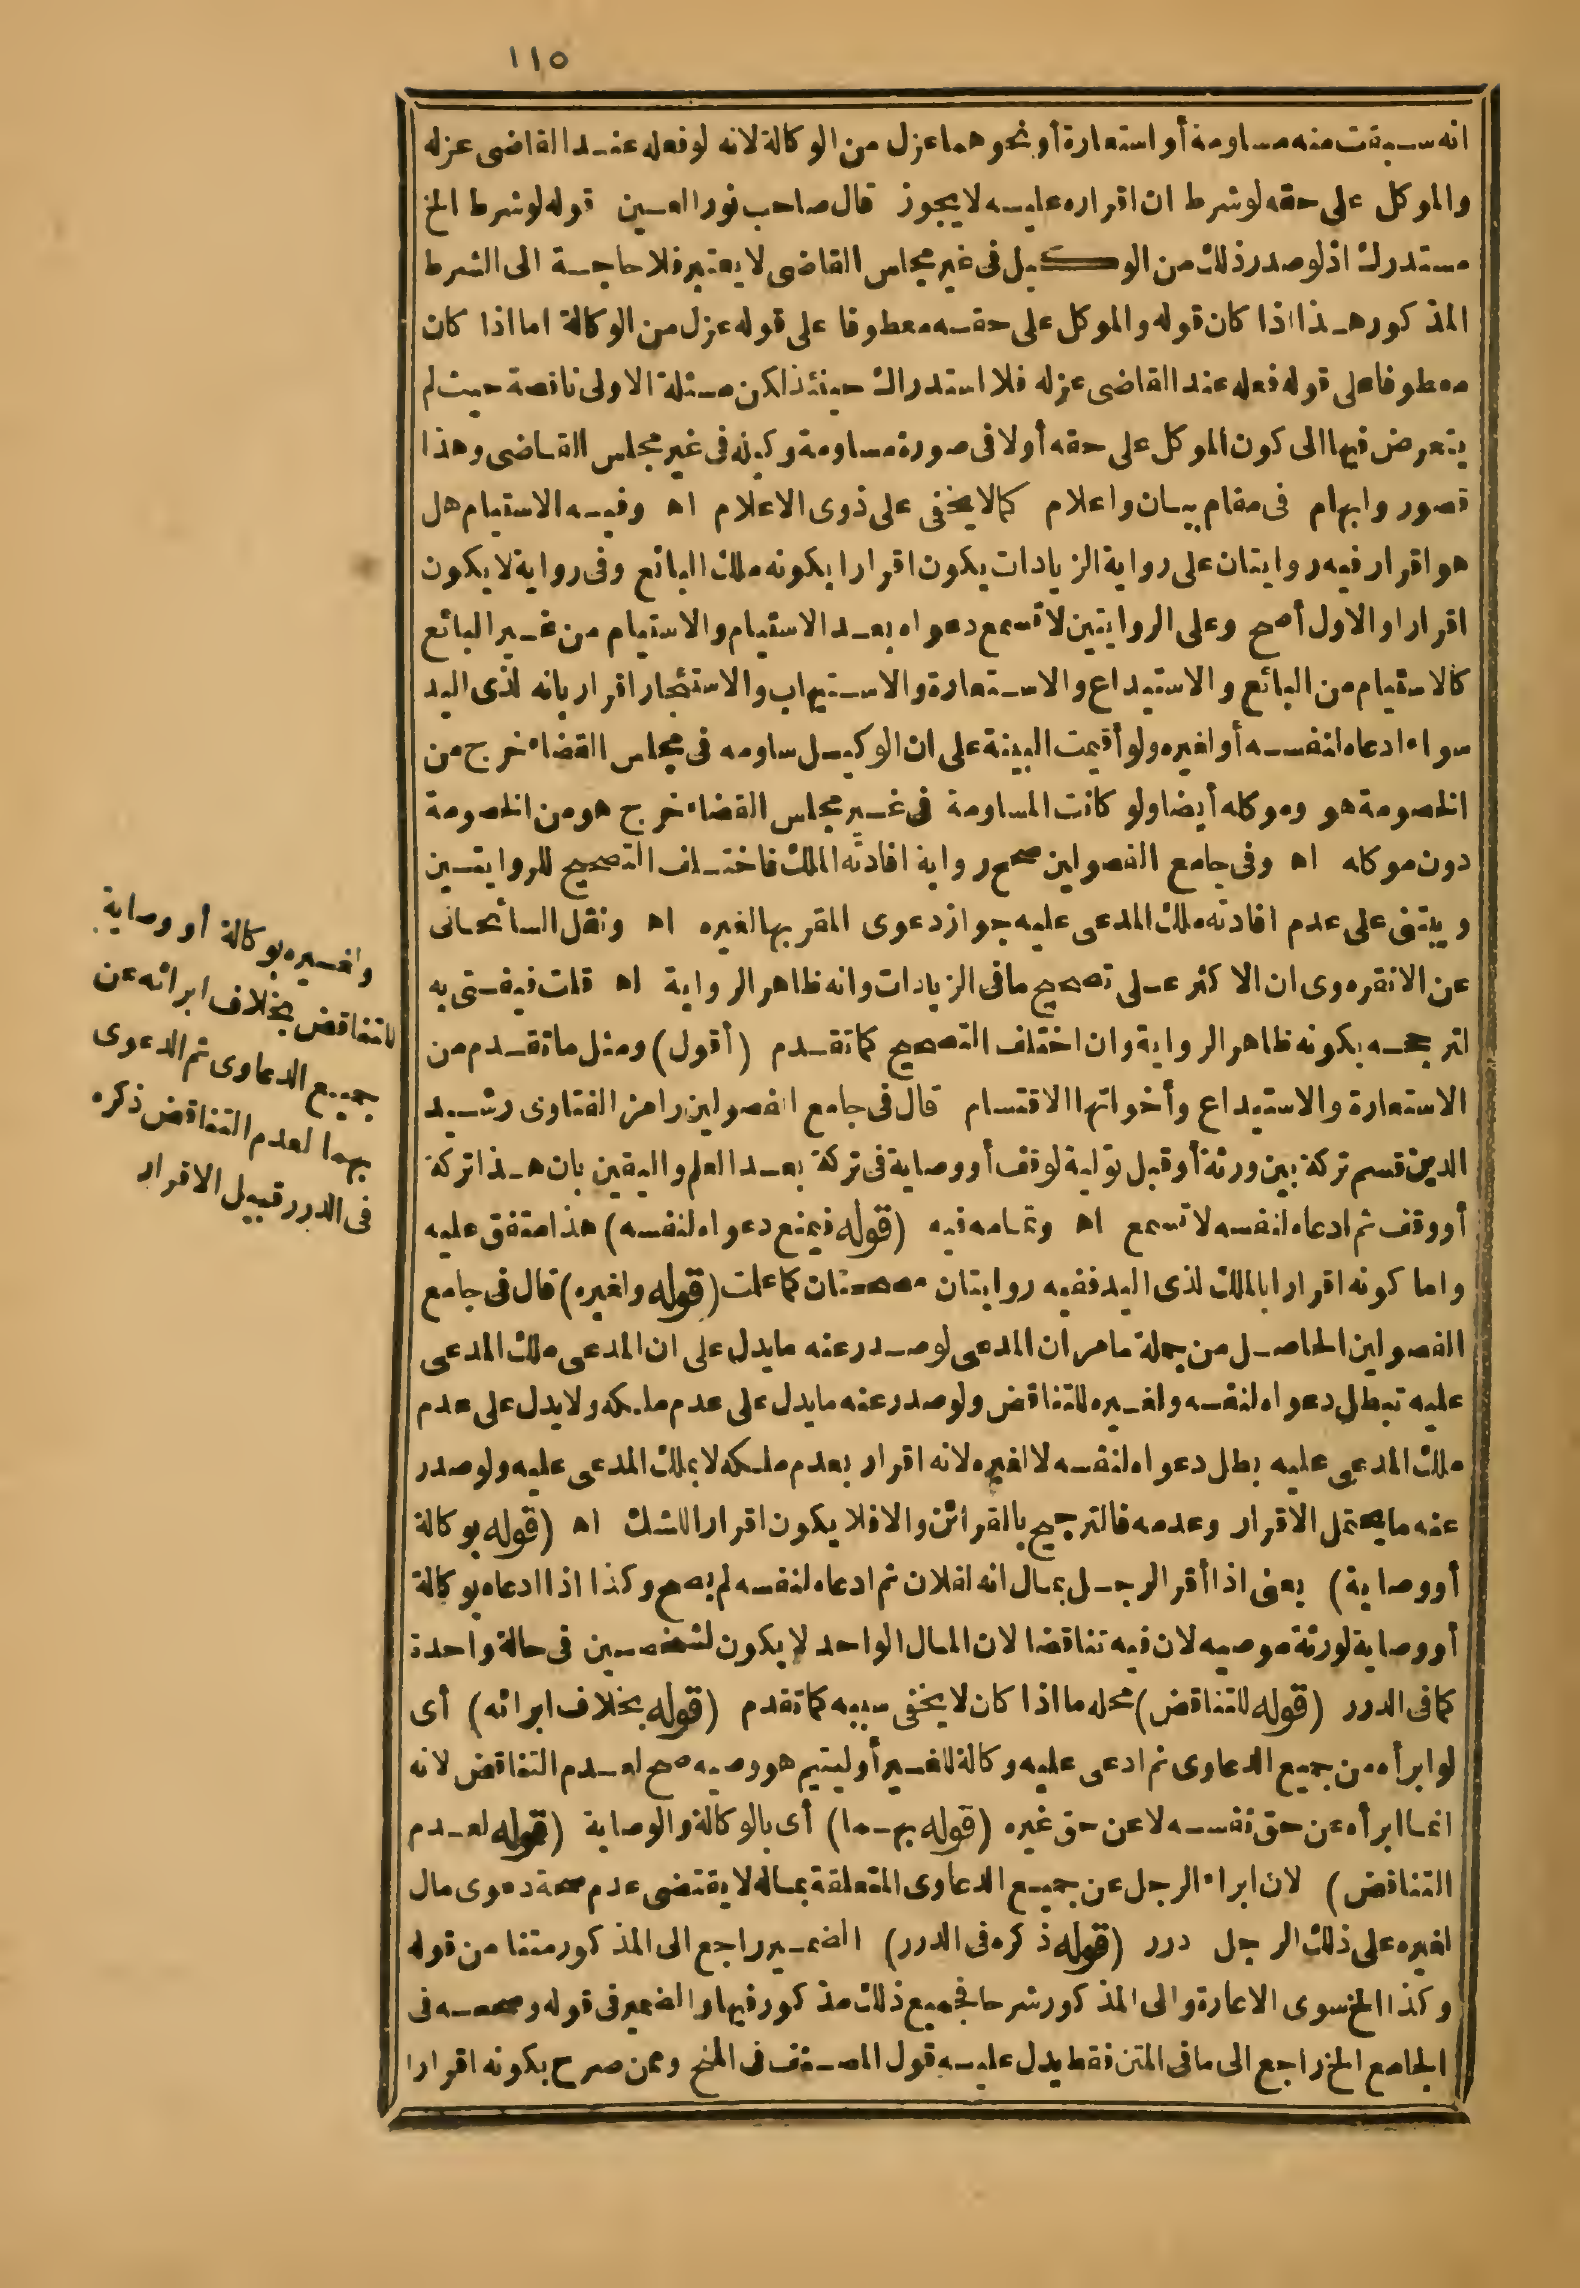 ١١٥
انه سبقت منه مساومة أو استعارة أو نحوهما عزل من الوكالة لانه لو فعله عند القاضى عزله
والموكل على حقه لو شرط ان اقراره عليه لا يجوز قال صاحب نور العين قوله لو شرط الخ
مستدرك اذ لو صدر ذلك من الوكيل فى غير مجلس القاضى لا يعتبر فلا حاجة الى الشرط
المذكور هذا اذا كان قوله والموكل على حقه معطوفا على قوله عزل من الوكالة اما اذا كان
معطوفا على قوله فعله عند القاضى عزله فلا استدراك حينئذ لكن مسئلة الاولى ناقصة حيث لم
يتعرض فيها الى كون الموكل على حقه أولا فى صورة مساومة وكيله فى غير مجلس القاضى وهذا
قصور وابهام فى مقام بيان واعلام كما لا يخفى على ذوى الاعلام اه وفيه الاستيام هل
هو اقرار فيه روايتان على رواية الزيادات يكون اقرارا بكونه ملك البائع وفى رواية لا يكون
اقرارا والاول أصح وعلى الروايتين لا تسمع دعواه بعد الاستيام والاستيام من غير البائع
كالاستيام من البائع والاستيداع والاستعارة والاستيهاب والاستئجار اقرار بانه لذى اليد
سواء ادعاه لنفسه أو لغيره ولو أقيمت البينة على ان الوكيل ساومه فى مجلس القضاء خرج من
الخصومة هو وموكله أيضا ولو كانت المساومة فى غير مجلس القضاء خرج هو من الخصومة
دون موكله اه وفى جامع الفصولين صحح رواية افادته الملك فاختلف التصحيح للروايتين
ويبتنى على عدم افادته ملك المدعى عليه جواز دعوى المقر بها لغيره اه ونقل السائحانى
عن الانقروى ان الاكثر على تصحيح ما فى الزيادات وانه ظاهر الرواية اه قلت فيفتى به
لترجحه بكونه ظاهر الرواية وان اختلف التصحيح كما تقدم (أقول) ومثل ما تقدم من
الاستعارة والاستيداع وأخواتها الاقتسام قال فى جامع الفصولين رامز الفتاوى رشيد
الدين قسم تركة بين ورثة أو قبل تولية لوقف أو وصاية فى تركة بعد العلم واليقين بان هذا تركة
أو وقف ثم ادعاه لنفسه لا تسمع اه وتمامه فيه (قوله فيمنع دعواه لنفسه) هذا متفق عليه
واما كونه اقرارا بالملك لذى اليد ففيه روايتان مصححتان كما علمت (قوله ولغيره) قال فى جامع
الفصولين الحاصل من جملة ما مر ان المدعى لو صدر عنه ما يدل على ان المدعى ملك المدعى
عليه تبطل دعواه لنفسه ولغيره للتناقض ولو صدر عنه ما يدل على عدم ملكه ولا يدل على عدم
ملك المدعى عليه بطل دعواه لنفسه لا لغيره لانه اقرار بعدم ملكه لا بملك المدعى عليه ولو صدر
عنه ما يحتمل الاقرار وعدمه فالترجيح بالقرائن والا فلا يكون اقرارا للشك اه (قوله بوكالة
أو وصاية) يعنى اذا أقر الرجل بمال انه لفلان ثم ادعاه لنفسه لم يصح وكذا اذا ادعاه بوكالة
أو وصاية لورثة موصيه لان فيه تناقضا لان المال الواحد لا يكون لشخصين فى حالة واحدة
كما فى الدرر (قوله للتناقض) محله ما اذا كان لا يخفى سببه كما تقدم (قوله بخلاف ابرائه) أى
لو ابرأه من جميع الدعاوى ثم ادعى عليه وكالة للغير أو ليتيم هو وصيه صح لعدم التناقض لانه
انما ابرأه عن حق نفسه لا عن حق غيره (قوله بهما) أى بالوكالة والوصاية (قوله لعدم
التناقض) لان ابراء الرجل عن جميع الدعاوى المتعلقة بماله لا يقتضى عدم صحة دعوى مال
لغيره على ذلك الرجل درر (قوله ذكره فى الدرر) الضمير راجع الى المذكور متنا من قوله
وكذا الخ سوى الاعارة والى المذكور شرحا فجميع ذلك مذكور فيها والضمير فى قوله وصححه فى
الجامع الخ راجع الى ما فى المتن فقط يدل عليه قول المصنف فى المنح وممن صرح بكونه اقرارا
ولغيره بوكالة أو وصاية
للتناقض بخلاف ابرائه عن
جميع الدعاوى ثم الدعوى
بهما لعدم التناقض ذكره
فى الدرر قبيل الاقرار